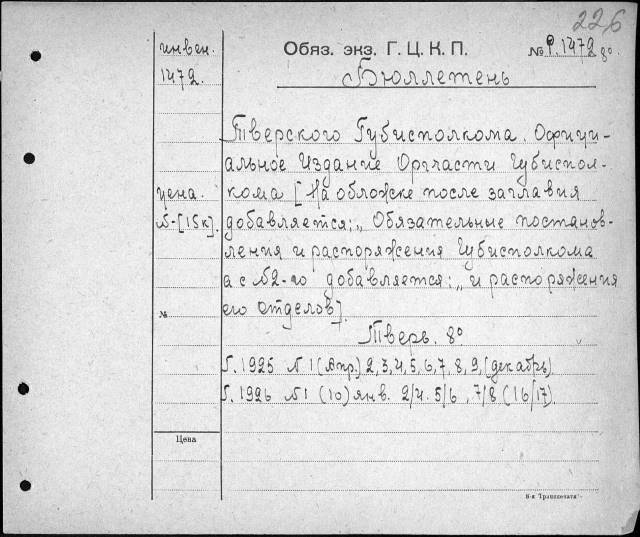 226
инвен.
1472.
Обяз. экз. Г. Ц. К. П.
№ Р. 1472 8°
Бюллетень
Тверского Губисполкома. Офици-
альное Издание Оргчасти Губиспол-
кома [На обложке после заглавия
цена.
№-[15к].
добавляется: „Обязательные постанов-
ления и распоряжения Губисполкома
а с №2-го добавляется: „и распоряжения
его отделов].
№
Тверь. 8°
Г. 1925 № 1 (Апр.) 2, 3, 4, 5, 6, 7, 8, 9, (декабрь)
Г. 1926 №1 (10) янв. 2/4. 5/6, 7/8 (16/17).
Цена
8-я "Транспечати".